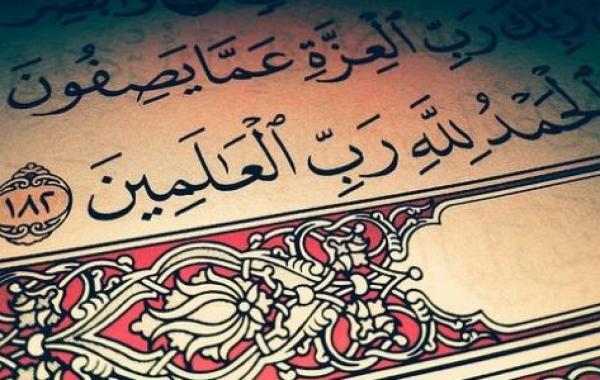 رَبِّكَ رَبِّ ٱلْعِزَّةِ عَمَّا يَصِفُونَ
ٱلْحَمْدُ لِلَّهِ رَبِّ ٱلْعَٰلَمِينَ ١٨٢